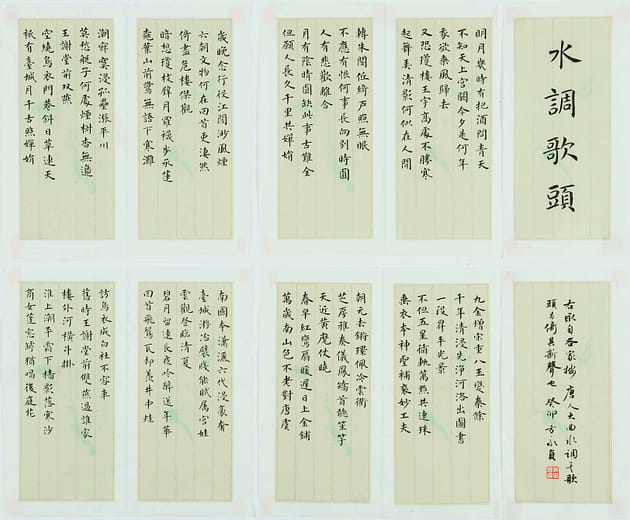 水調歌頭
明月幾時有把酒問青天
不知天上宮闕今夕是何年
我欲乘風歸去
又恐瓊樓玉宇高處不勝寒
起舞弄清影何似在人間
轉朱閣低綺戶照無眠
不應有恨何事長向別時圓
人有悲歡離合
月有陰晴圓缺此事古難全
但願人長久千里共嬋娟
歲晚念行役江闊渺風煙
六朝文物何在回首更淒然
倚盡危樓傑觀
暗想瓊枝璧月羅襪步承蓮
桃葉山前鷺無語下寒灘
潮寂寞浸孤壘漲平川
莫愁艇子何處煙樹杳無邊
王謝堂前雙燕
空繞烏衣門巷斜日草連天
祇有臺城月千古照嬋娟
唐人大曲水調之歌
頭另倚其新聲也 癸卯 方永貞
九金增宋重八玉變秦餘
千年清浸先淨河洛出圖書
一段昇平光景
不但五星循軌萬點共連珠
垂衣本神聖補袞妙工夫
朝元去鏘環佩冷雲衢
芝房雅奏儀鳳矯首聽笙竽
天近黃麾仗曉
春早紅鸞扇暖遲日上金鋪
萬歲南山色不老對唐虞
南國本瀟灑六代浸豪奢
臺城游冶襞箋能賦屬宮娃
雲觀登臨清夏
碧月留連長夜吟醉送年華
回首飛鴛瓦卻羨井中蛙
訪烏衣成白社不容車
舊時王謝堂前雙燕過誰家
樓外河橫斗掛
淮上潮平霜下檣影落寒沙
商女篷窗罅猶唱後庭花